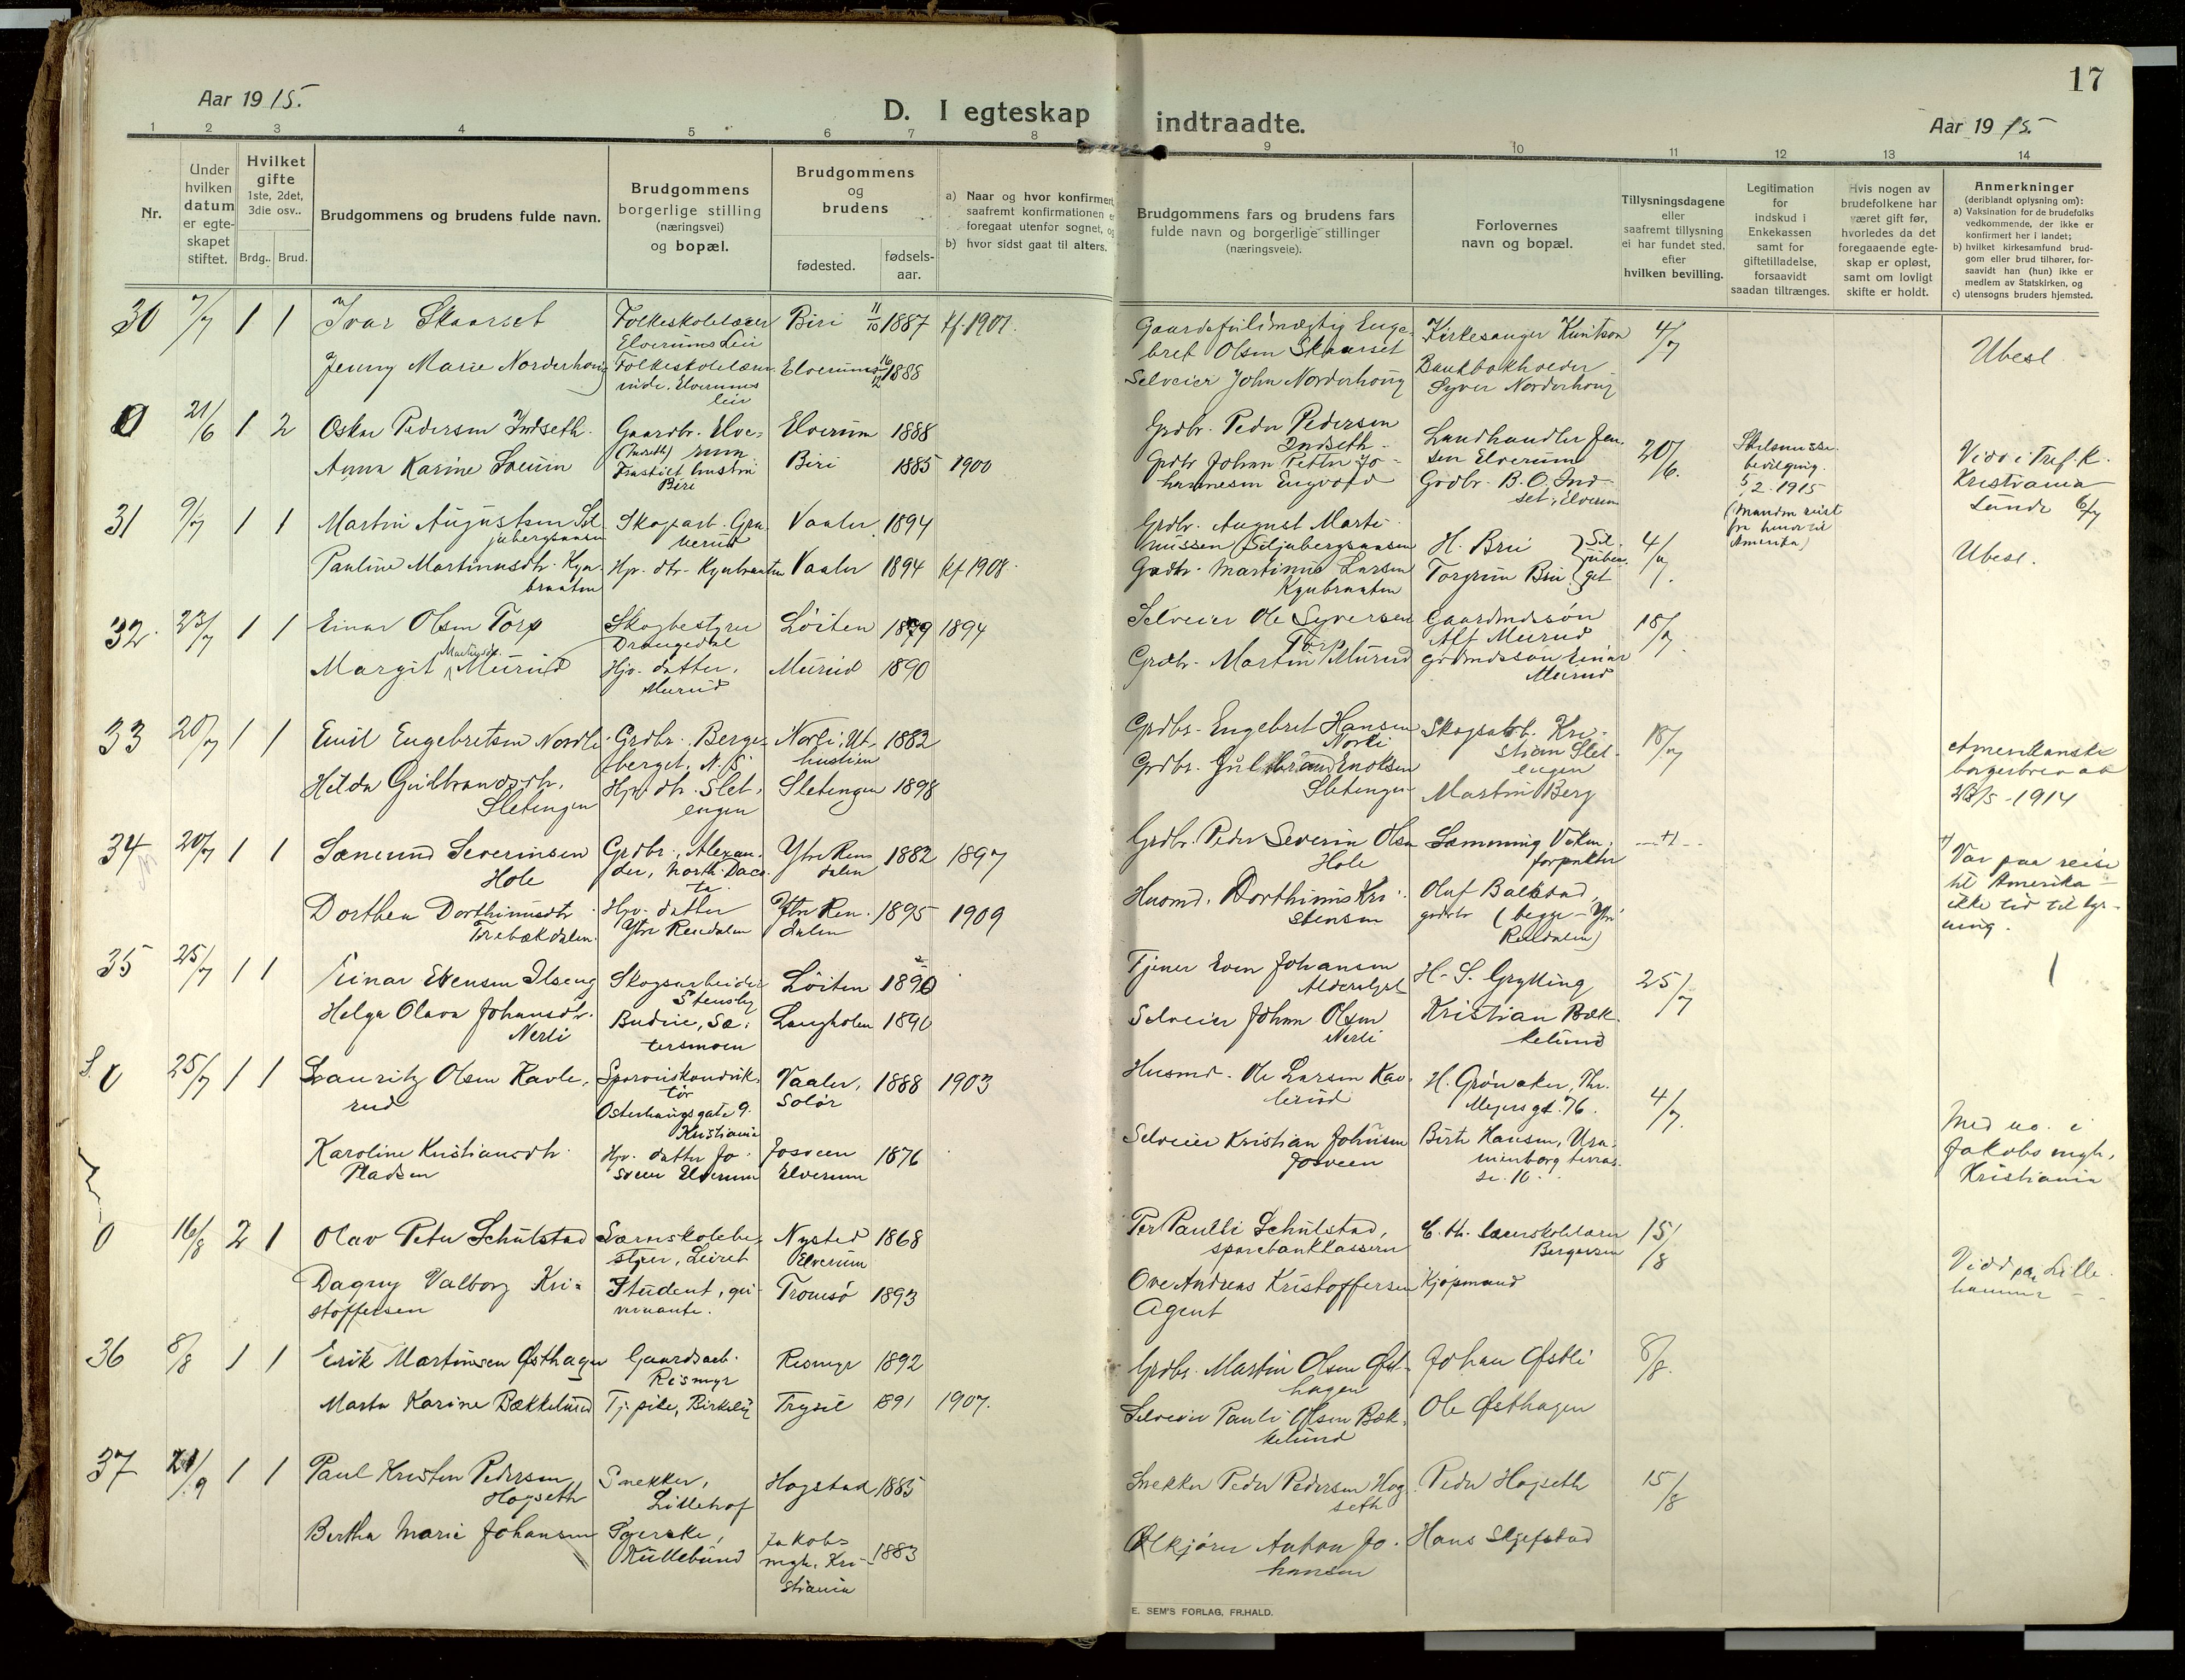 17
Aar 1915.
D. I egteskap indtraadte.
Aar 1915.
1 2 3 4 5 6 7 8 9 10 11 12 13 14
Nr.
Under hvilken datum er egteskapet stiftet.
Hvilket gifte 1ste, 2det, 3die osv..
Brdg.. Brud.
Brudgommens og brudens fulde navn.
Brudgommens borgerlige stilling (næringsvei) og bopæl.
Brudgommens og brudens
fødested.
fødselsaar.
a) Naar og hvor konfirmert, saafremt konfirmationen er foregaat utenfor sognet, og
b) hvor sidst gaat til alters.
Brudgommens fars og brudens fars fulde navn og borgerlige stillinger (næringsveie).
Forlovernes navn og bopæl.
Tillysningsdagene eller saafremt tillysning ei har fundet sted, efter hvilken bevilling.
Legitimation for indskud i Enkekassen samt for giftetilladelse, forsaavidt saadan tiltrænges.
Hvis nogen av brudefolkene har været gift før, hvorledes da det foregaaende egteskap er opløst, samt om lovligt skifte er holdt.
Anmerkninger (deriblandt oplysning om):
a) Vaksination for de brudefolks vedkommende, der ikke er konfirmert her i landet;
b) hvilket kirkesamfund brudgom eller brud tilhører, forsaavidt han (hun) ikke er medlem av Statskirken, og
c) utensogns bruders hjemsted.
30 7/7 1 1 Ivar Skaarset Folkeskolelærer Elverums Leir Biri 11/10 1887 kf. 1901. Gaardsfuldmægtig Engebret Olsen Skaarset Kirkesanger Knutson 4/7 Ubesl.
Jenny Marie Norderhoug Folkeskolelærerinde, Elverums leir Elverum 16/12 1888 Selveier John Norderhoug Bankbokholder Syver Norderhoug
0 21/6 1 2 Oskar Pedersen Indseth. Gaardbr. Elverum (Indseth) Elverum 1888 Grdbr. Peder Pedersen Indseth Landhandler Jensen Elverum 20/6. Skilsmissebevilgning. 5/2. 1915 (Manden reist fra hende til Amerika) Viod i Tref. k. Kristiania
Anna Karine Fraskilt hustru Biri Biri 1885 1900 Grdbr Johan Petter Johannesen Engvold Grdbr. B. O. Indset, Elverum
31 9/7 1 1 Martin Augustsen Siljubergsaasen Skogarb. Vaaler 1894 Grdbr. August Martinussen Siljubergsaasen H. Bru 4/7. Ubesl.
Pauline Martinusdtr. Kynbraaten Hjv. dtr. Kynbraaten Vaaler 1894 kf. 1908. Grdbr. Martinus Larsen Kynbraaten Torgrim Bru } Siljuberget
32. 23/7 1 1 Einar Olsen Torp Skogbestyrer Drangedal Löiten 1879 1894 Selveier Ole Syversen Torp Gaardmdssön Alf Mürud 18/7.
Margit Martinsdtr. Mürud Hjv. datter, Mürud Mürud 1890 Grdbr. Martin Mürud grdmdssön Einar Mürud
33 20/7 1 1 Emil Engebretsen Nordli Grdbr. Bergeberget, N. S. 1882 Grdbr. Engebret Hansen Norli Skogsarb. Kristian Sletengen 18/7 Amerikansk borgerbrev av 23/5 - 1914
Hilda Gulbrandsdtr. Sletengen Hjv. dtr. Sletengen Sletengen 1898 Grdbr. Gulbrand Enoksen Sletengen Martin Berg
34 20/7 1 1 Severinsen Hole Grdbr., Alexander, North Dacota Ytre Rendalen 1882 1897 Grdbr. Peder Severin Olsen Hole —+)— +) Var paa reise til Amerika — ikke tid til lysning.
Dorthea Dorthinusdtr Hjv. datter Ytre Rendalen Ytre Rendalen 1895 1909 Husmd. Dorthinus Kristensen Oluf Balstad, grdbr (begge — Ytre Rendalen)
35 25/7 1 1 Einar Evensen Ilseng Skogsarbeider Stensby Löiten 1890 Tjener Even Johansen H. S. Grylling 25/7
Helga Olava Johansdtr. Nerli Budeie, Sætersmoen Langholen 1890 Selveier Johan Olsen Nerli Kristian Bækkelund
S. 0 25/7 1 1 Lauritz Olsen Kavlerud Sporveiskonduktör Osterhaugsgate 9. Kristiania Vaaler, Solör 1888 1903 Husmd. Ole Larsen Kavlerud H. Grönaker, Thr. Meyers gt. 76. 4/7. Med no. i Jakobs mgh. Kristiania
Karoline Kristiansdtr. Pladsen Hjv. datter Josveen Elverum Josveen Elverum 1876 Selveier Kristian Johnsen Josveen Birte Hansen, Uranienborg terrasse. 10.
0 16/8 2 1 Olav Peter Schulstad Værnskolebestyrer, Leiret Nysted Elverum 1868 Per Paulli Schulstad, sparebankkasserer Bergersen 15/8 Viod paa Lillehammer
Dagny Valborg Kristoffersen Student, guvernante. Tromsö 1893 Ove Andreas Kristoffersen Agent Kjöpmand
36 8/8 1 1 Erik Martinsen Østhagen Gaardsarb. Rismyr Rismyr 1892 Grdbr. Martin Olsen Østhagen Johan Østli 8/8.
Marta Karine Bækkelund Tj. pike, Birkeli Trysil 1891 1907. Selveier Pauli Olsen Bækkelund Ole Østhagen
37 21/9 1 1 Paul Kristen Pedersen Hogseth Snekker, Lillehof Hogstad 1885 Snekker Peder Pedersen Hogseth Peder Hogseth 15/8
Bertha Marie Johansen Jakobs mgh. Kristiania 1883 Ølkjörer Anton Johansen Hans Skjefstad
E. SEM'S FORLAG, FR.HALD.